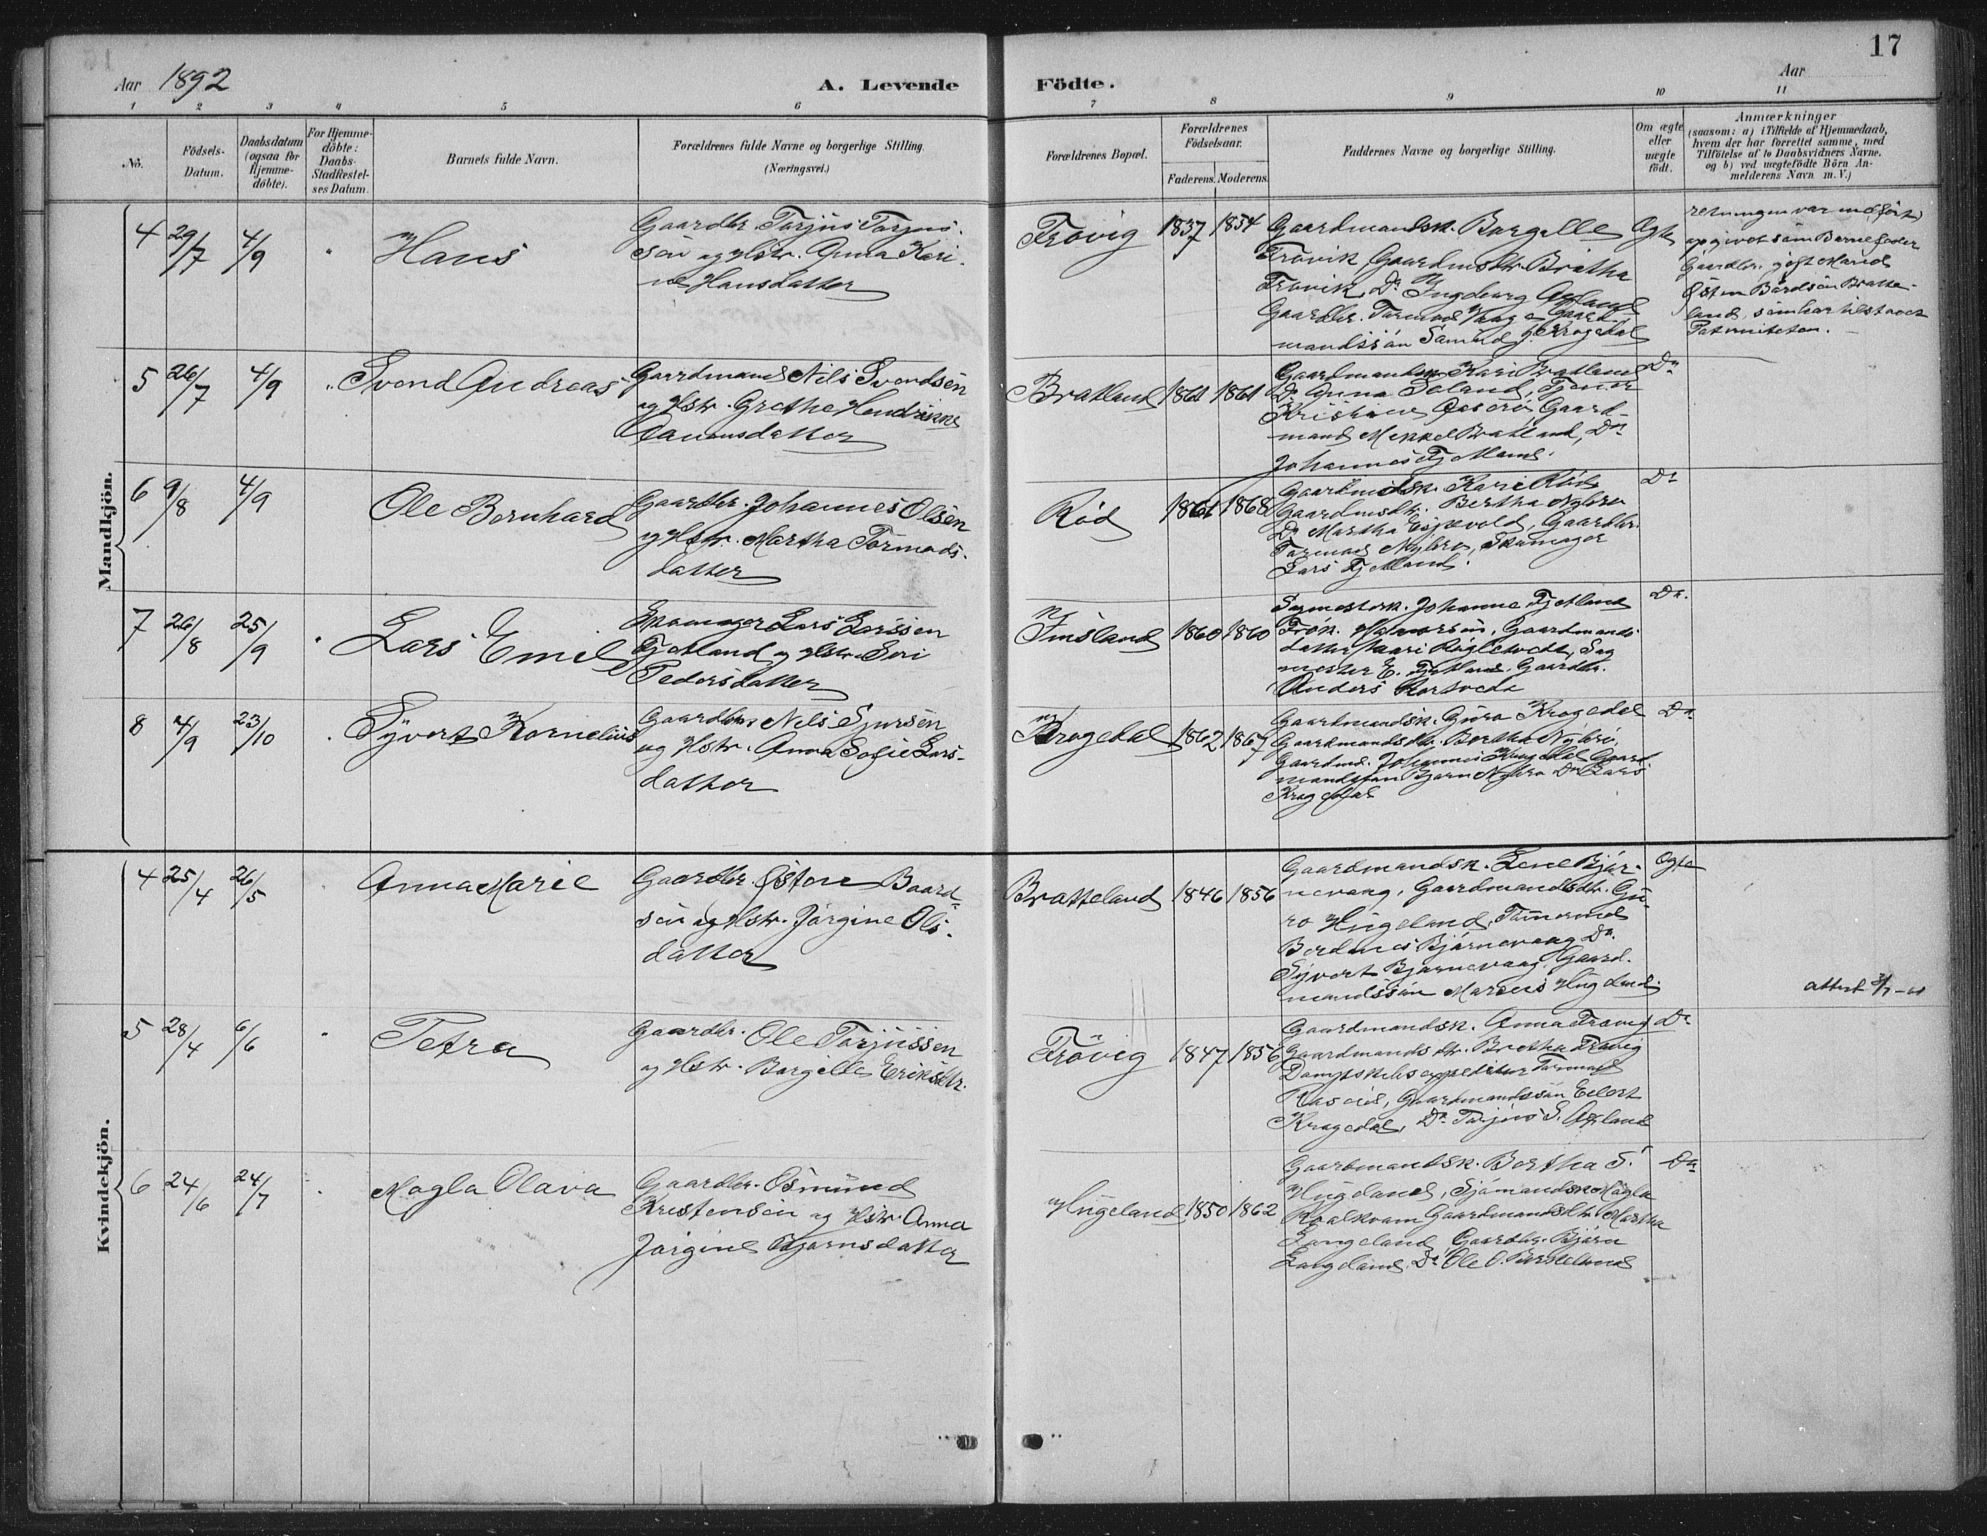 17
Aar 1892
A. Levende Födte.
Aar
1 2 3 4 5 6 7 8 9 10 11
No.
Födsels-Datum.
Daabsdatum (ogsaa for Hjemme-döbte).
For Hjemme-döbte: Daabs-Stadfestel-ses Datum.
Barnets fulde Navn.
Forældrenes fulde Navne og borgerlige Stilling. (Næringsvei.)
Forældrenes Bopæl.
Forældrenes Födselsaar.
Faderens. Moderens.
Faddernes Navne og borgerlige Stilling.
Om ægte eller uægte födt.
Anmærkninger
(saasom: a) i Tilfælde af Hjemmedaab,
hvem der har forrettet samme, med
Tilföielse af to Daabsvidners Navne,
og b) ved uegtefödte Börn An-
melderens Navn m. V.)
Mandkjön.
4 29/7 4/9 " Hans
Gaardbr. Torjus Torjus-
sön og Hstr. Anna Kari-
ne Hansdatter
Trövig 1837 1854
Gaardmandsk. Borgelle
Trövik Gaardmsdtr. Britha
Trövik, Do Ingeborg
Gaardbr. Tormod Gaard-
mandssön Samuel J. Krogedal
Ægte
opgivet som Barnefader
Gaardbr. gift Mand
Østen Bårdsön Bratte-
land, som har tilstaaet
Paterniteten.
5 26/7 4/9 " Svend Andreas
Gaardmand Nils Svendsen
og Hstr. Grethe Hendrikke
datter
Bratland 1861 1861
Gaardmandsk. Kari Bratland
Do Anna
Kristine Gaard-
mand Mikkel Bratland, Do
Johannes Fjetland.
Do
6 9/8 4/9 Ole Bernhard
Gaardbr. Johannes Olsen
og Hstr. Martha Tormods-
datter
Röd 1861 1868
Gaardmdsk. Kari Röd
Gaardmsdtr. Bertha Nybro
Do Martha Espevold, Gaardbr.
Tormod Nybro, Skomager
Lars Fjetland.
Do
7 26/8 25/9 " Lars Emil
Skomager Lars Larssen
Fjetland og Hstr. Siri
Pedersdatter
Insland 1860 1860
Johanne Fjetland
Frök. Gaardmands-
datter
mester E. Fjetland, Gaardbr.
Anders
Do.
8 4/9 23/10 . Syvert Kornelius
Gaardbr. Nils Sjursen
og Hstr. Anna Sofie Lars-
datter
Krogedal 1862 1867
Gaardmandsk. Guro Krogedal
Gaardmandsdtr. Bertha Nybro,
Gaardmd. Johannes Krogedal Gaard
mandssön Bjorn Nybro Do Lars
Krogedal
Do.
Kvindekjön.
4 25/4 26/5 Anna Marie
Gaardbr. Østen Baard-
sön og Hstr. Jörgine Ols-
datter
Bratteland 1846 1856
Gaardmandsk. Lene Björ-
nevaag, Gaardmandsdtr. Gu-
ro Hugeland, Tömmermd
Berdines Björnevaag Do.
Syvert Bjørnevaag, Gaard-
mandssön Marcus Hugeland.
Ægte
attest
5 28/4 6/6 " Petra
Gaardbr. Ole Torjussen
og Hstr. Borgille Eriksdtr.
Trövig 1847 1856
Gaardmandsk. Anna Trövig
Gaardmandsdtr. Bretha Trövig
Dampskibsexpeditør Tormod
Gaardmandssön Eilert
Krogedal, Do Torjus S.
Do
6 24/6 24/7 . Magla Olava
Gaardbr. Osmund
Kristensen og Hstr. Anna
Jörgine Bjornsdatter
Hugeland 1850 1862
Gaardmandsk. Bertha S.
Hugeland, Sjömandsk. Magla
Roalkvam Gaardmandsdtr. Martha
Langeland Gaardbr. Björn
Langeland. Do Ole O.
Do